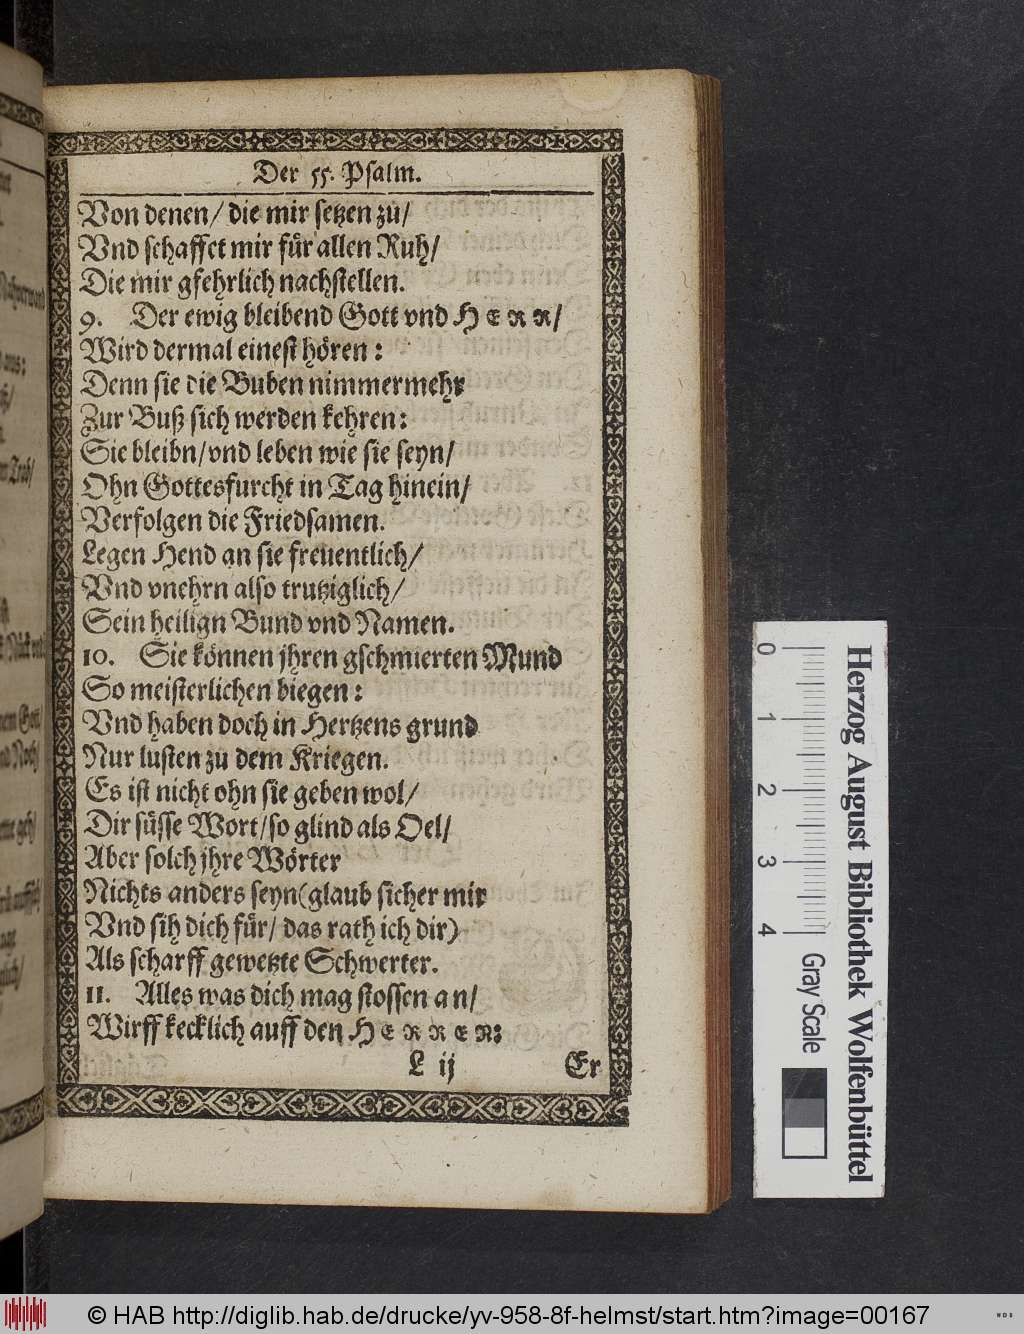 Der 55. Psalm.
Von denen/ die mir setzen zu/
Vnd schaffet mir für allen Ruh/
Die mir gfehrlich nachstellen.
9. Der ewig bleibend Gott vnd HERR/
Wird dermal einest hören:
Denn sie die Buben nimmermehr
Zur Buß sich werden kehren:
Sie bleibn/vnd leben wie sie seyn/
Ohn Gottesfurcht in Tag hinein/
Verfolgen die Friedsamen.
Legen Hend an sie freuentlich/
Vnd vnehrn also trutziglich/
Sein heilign Bund vnd Namen.
10. Sie können jhren gschmierten Mund
So meisterlichen biegen:
Vnd haben doch in Hertzens grund
Nur lusten zu dem Kriegen.
Es ist nicht ohn sie geben wol/
Dir süsse Wort/so glind als Oel/
Aber solch jhre Wörter
Nichts anders seyn(glaub sicher mir
Vnd sih dich für/ das rath ich dir)
Als scharff gewetzte Schwerter.
11. Alles was dich mag stossen an/
Wirff kecklich auff den HERREN:
L ij Er
0 1 2 3 4 Gray Scale
Herzog August Bibliothek Wolfenbüttel
© HAB http://diglib.hab.de/drucke/yv-958-8f-helmst/start.htm?image=00167